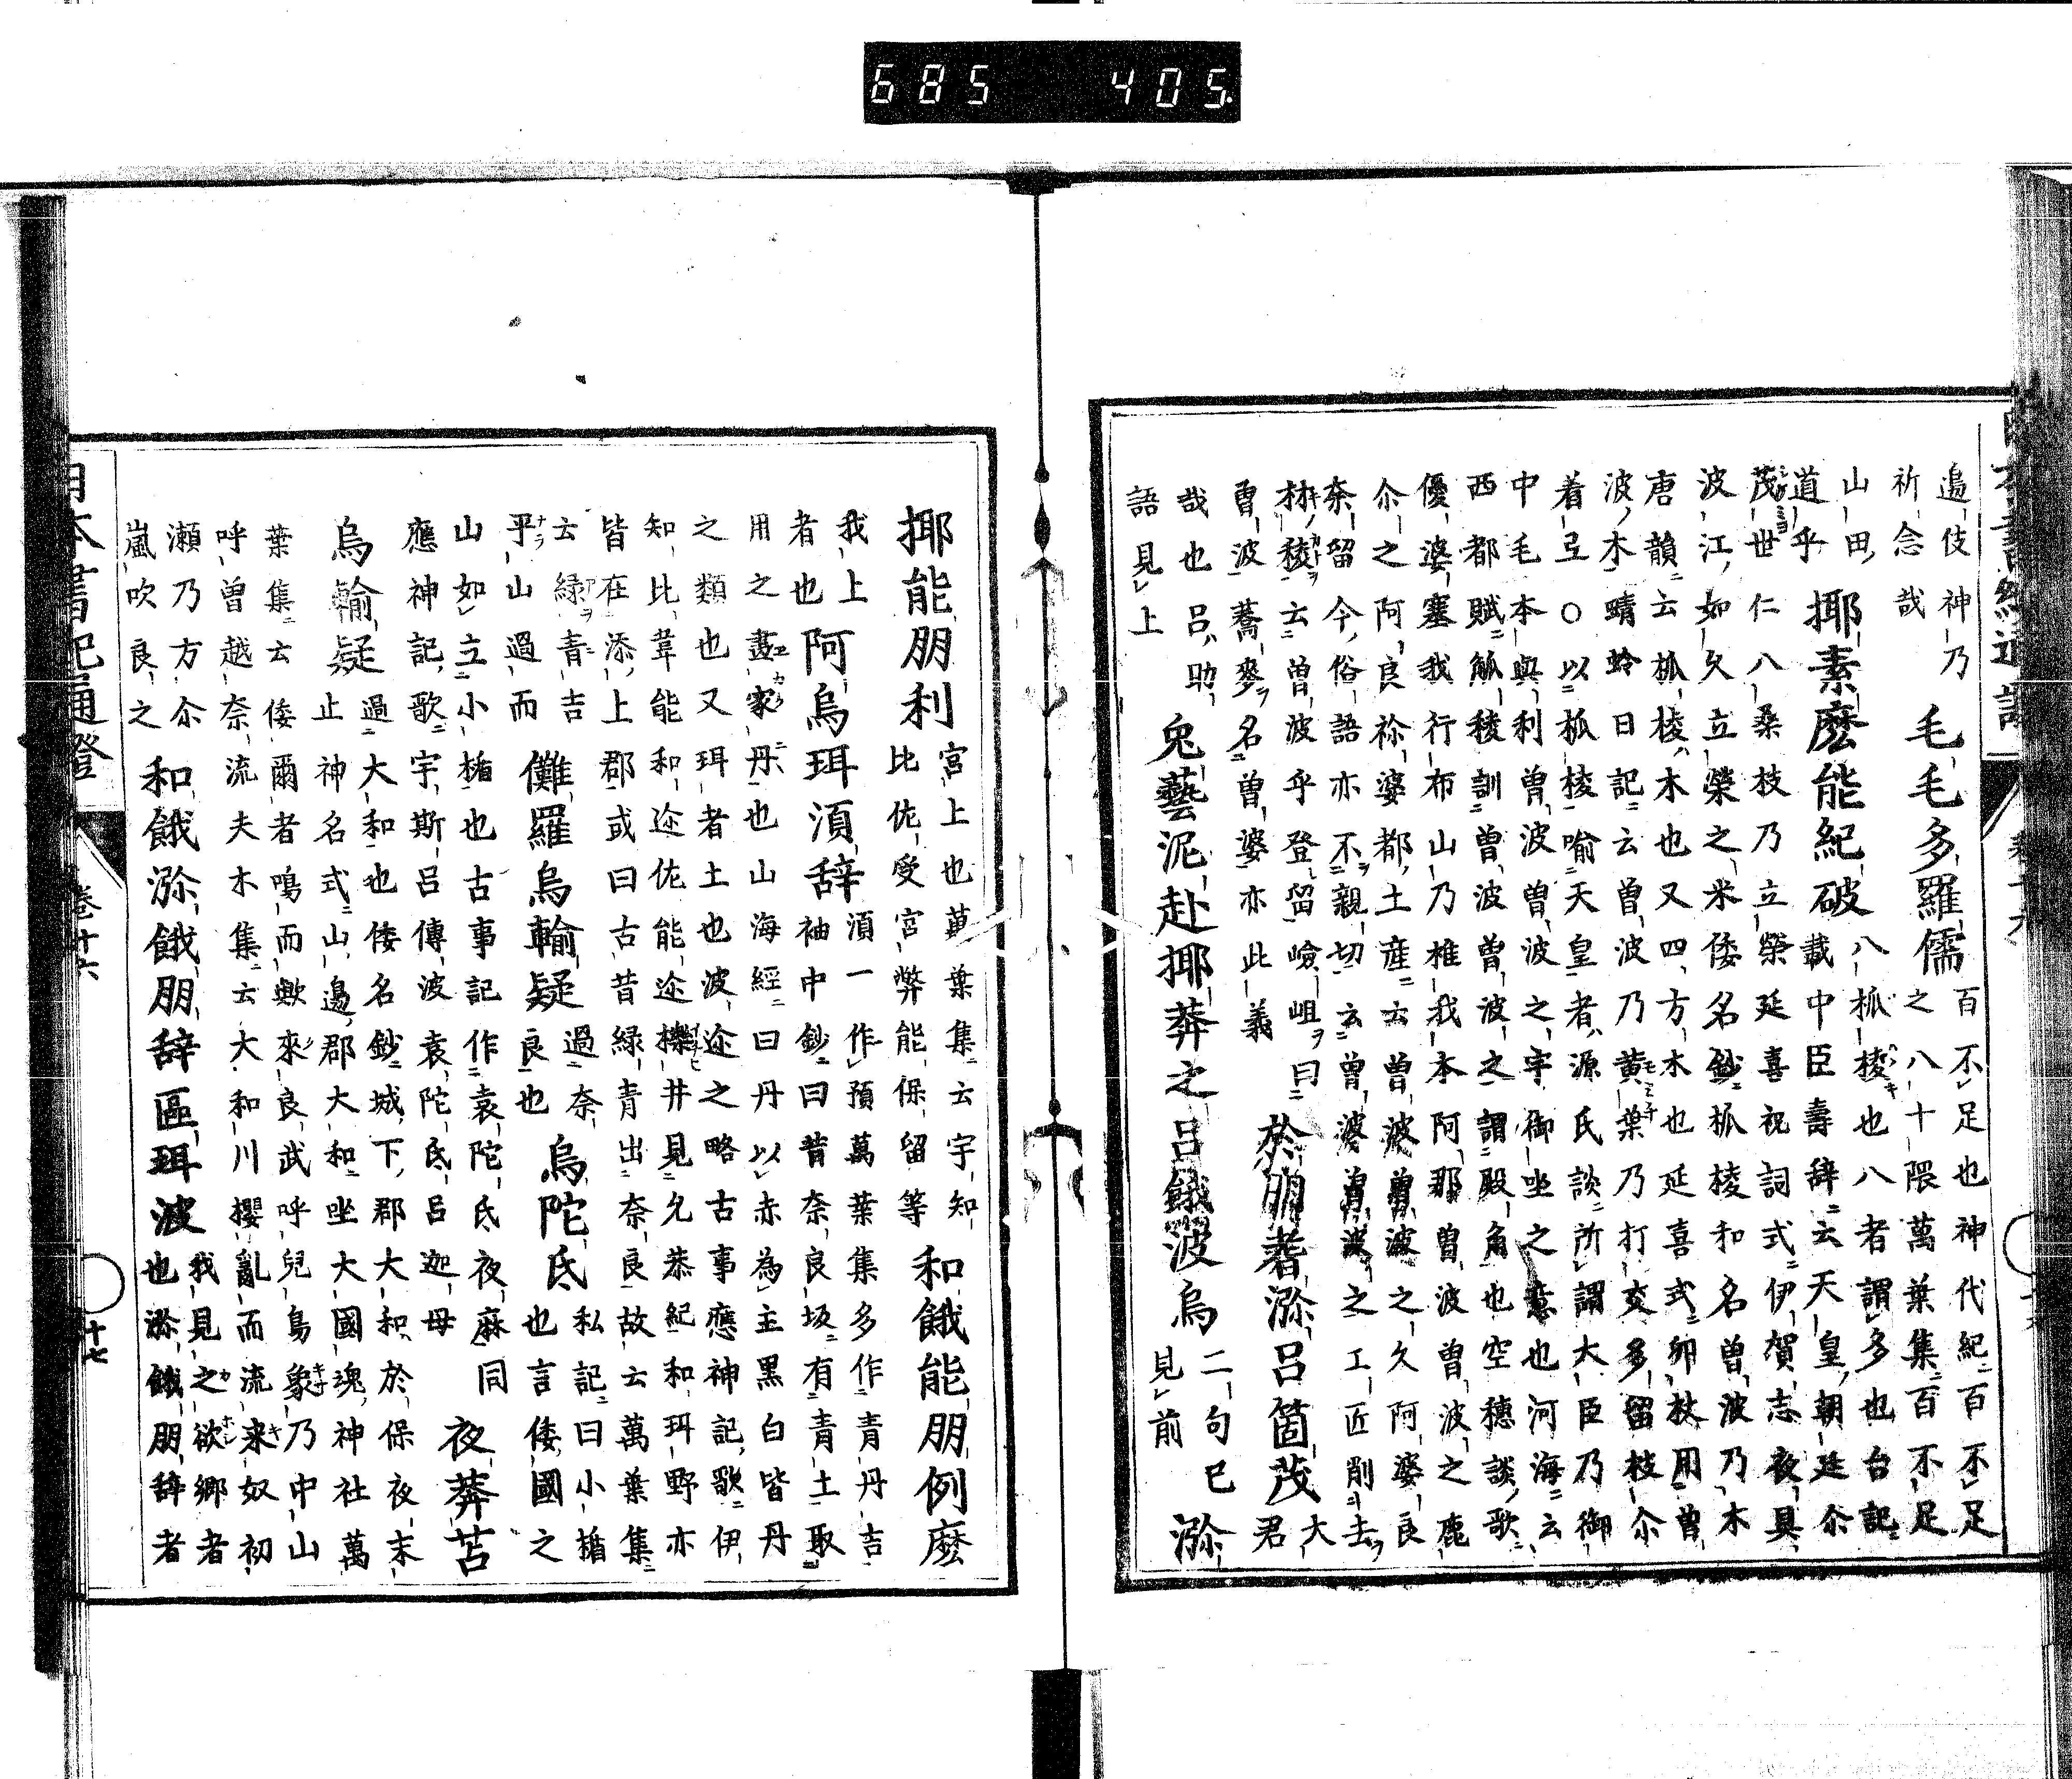 685 405.
邉伎神乃
祈念哉
毛毛多羅儒
百不足也神代紀百不足
之八十隈萬葉集百不足
山田
道乎
揶素麼能紀破
八㧓棱也八者謂多也台記
載中臣壽辞云天皇朝廷尒
茂世仁八桑枝乃立榮延喜祝詞式伊賀志夜具
波江如久立榮之米倭名鈔㧓棱和名曽波乃木
唐韻云㧓棱木也又四方木也延喜式卯杖用曽
波木蜻蛉日記云曽波乃黄葉乃打交多留枝尒
着弖〇以㧓棱喻天皇者源氏談所謂大臣乃御
中毛本與利曽波曽波之宇御坐之意也河海云
西都賦觚稜訓曽波曽波之謂殿角也空穗談歌
優婆塞我行布山乃椎我本阿那曽波曽波之鹿
尒之阿良祢婆都土産云曽波曽波之久阿婆良
奈留今俗語亦不親切云曽婆曽波之工匠削去
林稜云曽波乎登留嶮岨曰
曽波蕎麥名曽婆亦此義
於朋耆瀰呂箇茂
大
君
哉也呂助
語見上
兔藝泥赴揶莽之呂餓波烏
二句已
見前
瀰
揶能朋利
宮上也萬葉集云宇知
比佐受宮弊能保留等
和餓能朋例麼
我上
者也
阿烏珥湏辞
湏一作預萬葉集多作青丹吉
袖中鈔曰昔奈良坂有青土取
用之畫家丹也山海經曰丹以赤為主黒白皆丹
之類也又珥者土也波迩之略古事應神記歌伊
知比韋能和迩佐能迩櫟井見允恭紀和珥野亦
皆在添上郡或曰古昔緑青出奈良故云萬葉集
云緑青吉
平山過而
儺羅烏輸疑
過奈
良也
烏陀氐
私記曰小楯
也言倭國之
山如立小楯也古事記作袁陀氐夜麻
應神記歌宇斯呂傳波袁陀氐呂迦母同
夜莽苔
烏輸疑
過大和也倭名鈔城下郡大和於保夜末
止神名式山邉郡大和坐大國魂神社萬
葉集云倭爾者鳴而歟來良武呼兒鳥象乃中山
呼曽越奈流夫木集云大和川櫻亂而流来奴初
瀬乃方尒
嵐吹良之
和餓瀰餓朋辞區珥波
我見之欲郷者
也瀰餓朋辞者
卷十六
十七